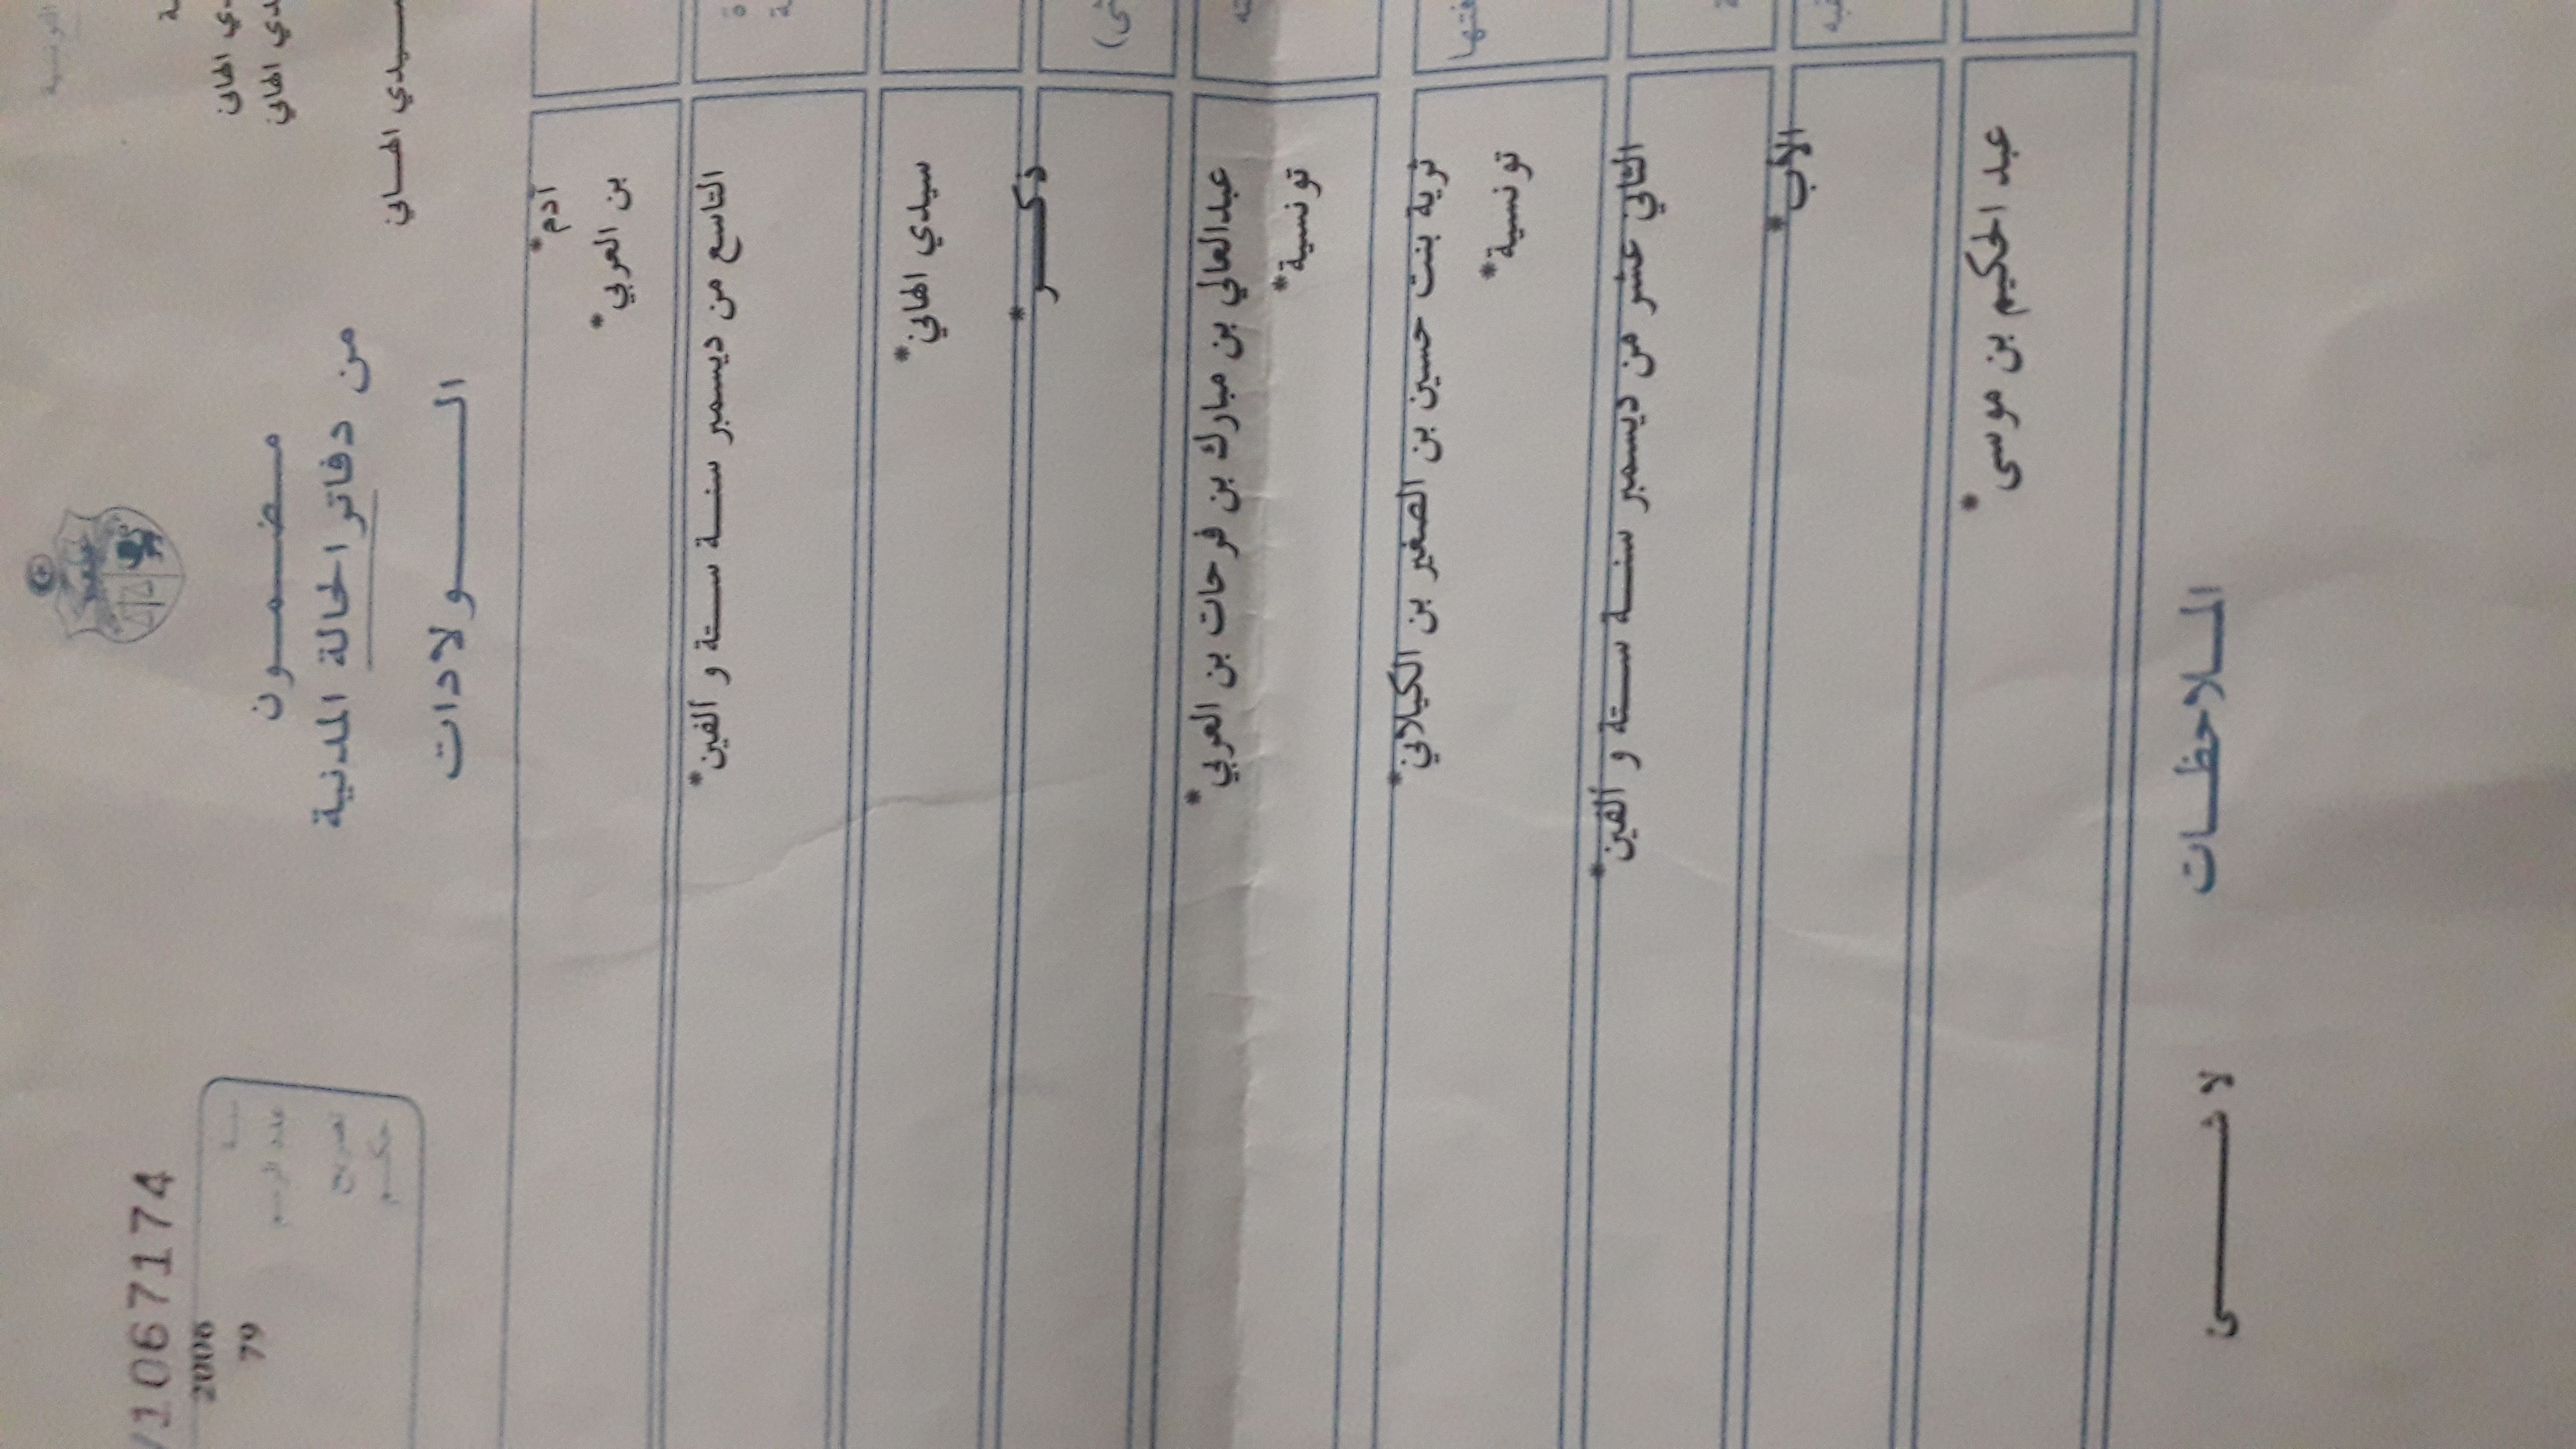 /1067174
2006
79
عدد الرسم
تصريح
حكم
مضمون
من دفاتر الحالة المدنية
الولادات
سيدي الهاني
آدم*
بن العربي*
التاسع من ديسمبر سنة ستة و ألفين*
سيدي الهاني*
ذكر*
عبدالعالي بن مبارك بن فرحات بن العربي*
تونسية*
بنت حسين بن الصغير بن الكيلاني*
تونسية*
الثاني عشر من ديسمبر سنة ستة و ألفين*
الأب*
عبد الحكيم بن موسى*
الملاحظات
لا شئ